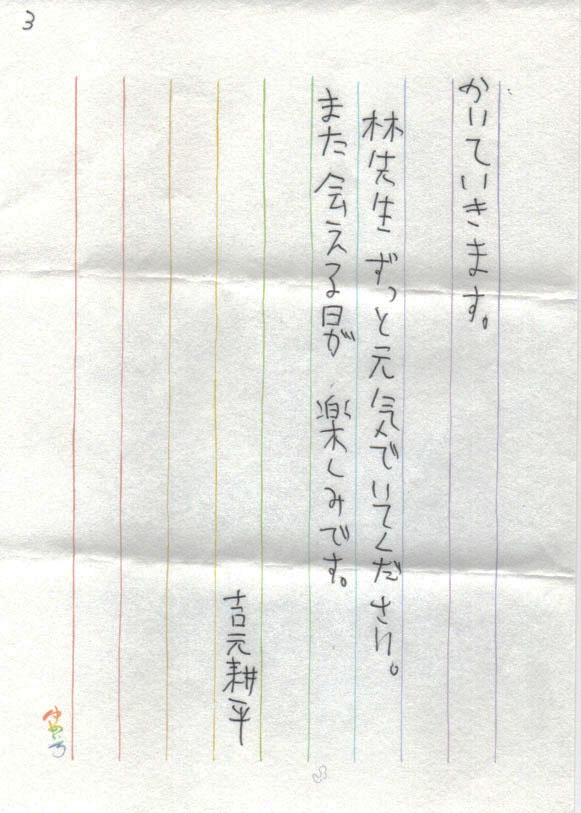 3
かいていきます。
林先生ずっと元気でいてください。
また会える日が楽しみです。
吉元耕平
ゆめいろ